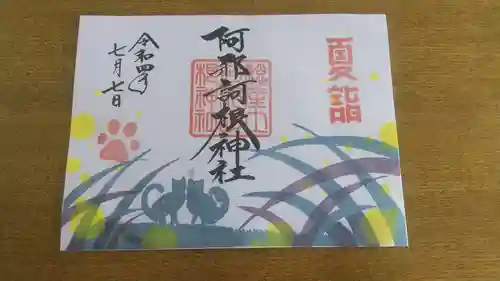 夏詣
阿邪訶根神社
令和四年
七月七日